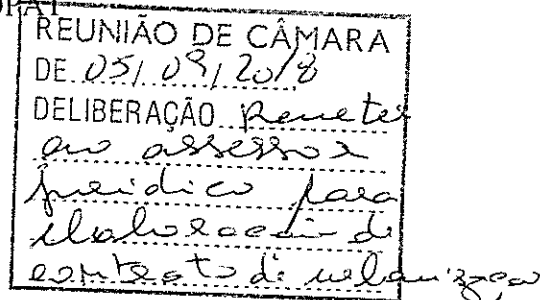 REUNIÃO DE CÂMARA
DE 05/09/2018
DELIBERAÇÃO Remeter
ao assessor
jurídico para
elaboração de
contrato de urbanização